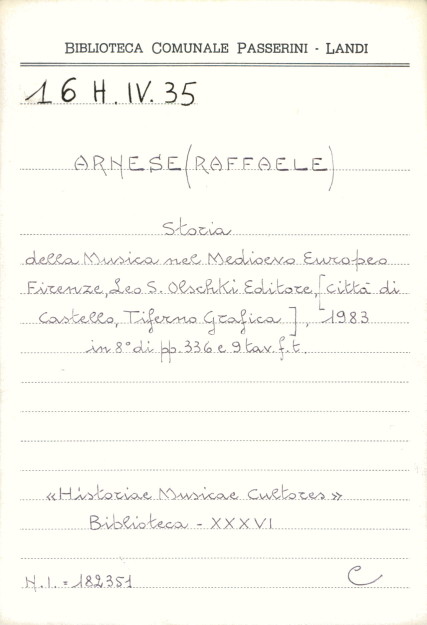 BIBLIOTECA COMUNALE PASSERINI - LANDI
16 H. IV. 35
ARNESE (RAFFAELE)
Storia
della Musica nel Medioevo Europeo
Firenze, Leo S. Olschki Editore, [Città di
Castello, Tiferno Grafica], 1983
in 8° di pp. 336 e 9 tav. f. t.
«Historiae Musicae Cultores»
Biblioteca - XXXVI
N. I. = 182351
C